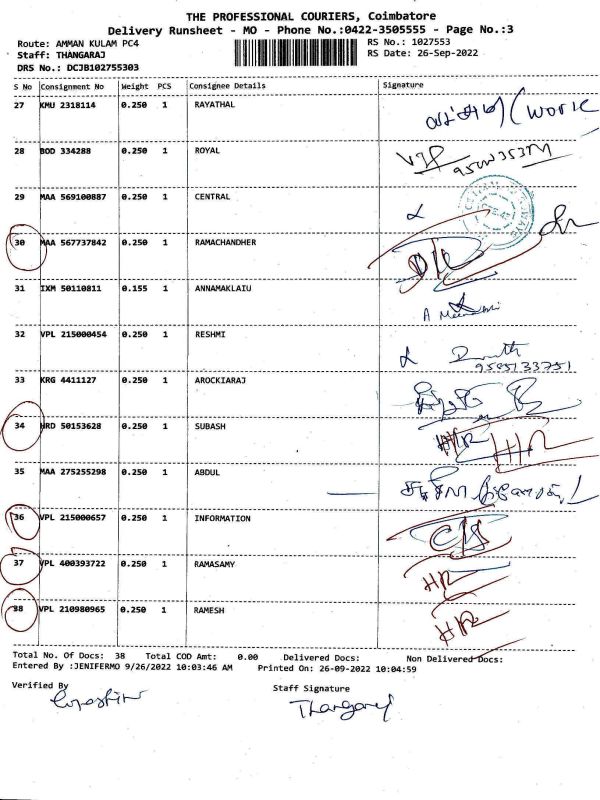 THE PROFESSIONAL COURIERS, Coimbatore
Delivery Runsheet - MO - Phone No.:0422-3505555 - Page No.:3
Route: AMMAN KULAM PC4
RS No.: 1027553
Staff: THANGARAJ
RS Date: 26-Sep-2022
DRS No.: DCJB102755303
S No Consignment No Weight PCS Consignee Details Signature
27 KMU 2318114 0.250 1 RAYATHAL
28 BOD 334288 0.250 1 ROYAL
29 MAA 569100887 0.250 1 CENTRAL
30 MAA 567737842 0.250 1 RAMACHANDHER
31 IXM 50110811 0.155 1 ANNAMAKLAIU
32 VPL 215000454 0.250 1 RESHMI
9585133751
33 KRG 4411127 0.250 1 AROCKIARAJ
34 HRD 50153628 0.250 1 SUBASH
35 MAA 275255298 0.250 1 ABDUL
36 VPL 215000657 0.250 1 INFORMATION
37 VPL 400393722 0.250 1 RAMASAMY
38 VPL 210980965 0.250 1 RAMESH
Total No. Of Docs: 38 Total COD Amt: 0.00 Delivered Docs: Non Delivered Docs:
Entered By :JENIFERMO 9/26/2022 10:03:46 AM Printed On: 26-09-2022 10:04:59
Verified By
Staff Signature
Thangaraj